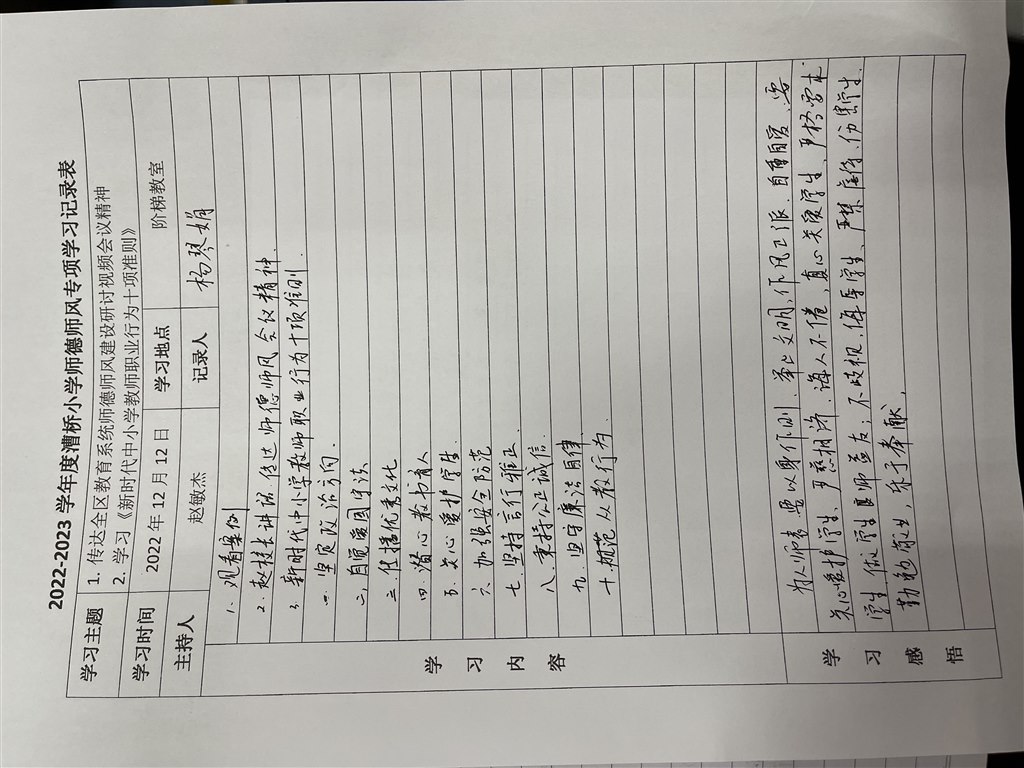 2022-2023 学年度漕桥小学师德师风专项学习记录表
学习主题 1. 传达全区教育系统师德师风建设研讨视频会议精神
2. 学习《新时代中小学教师职业行为十项准则》
学习时间 2022 年 12 月 12 日 学习地点 阶梯教室
主持人 赵敏杰 记录人 杨琴娟
学习内容
1. 观看案例
2. 赵校长讲话传达师德师风会议精神.
3. 新时代中小学教师职业行为十项准则.
一. 坚定政治方向
二. 自觉爱国守法
三. 传播优秀文化
四. 潜心教书育人
五. 关心爱护学生.
六. 加强安全防范
七. 坚持言行雅正
八. 秉持公正诚信.
九. 坚守廉洁自律
十. 规范从教行为.
学习感悟
为人师表要以身作则. 举止文明, 作风正派. 自重自爱. 要
关心爱护学生、严慈相济. 诲人不倦, 真心关爱学生、严格要求
学生. 做学生良师益友; 不歧视、侮辱学生、严禁虐待、伤害学生.
勤勉敬业, 乐于奉献.